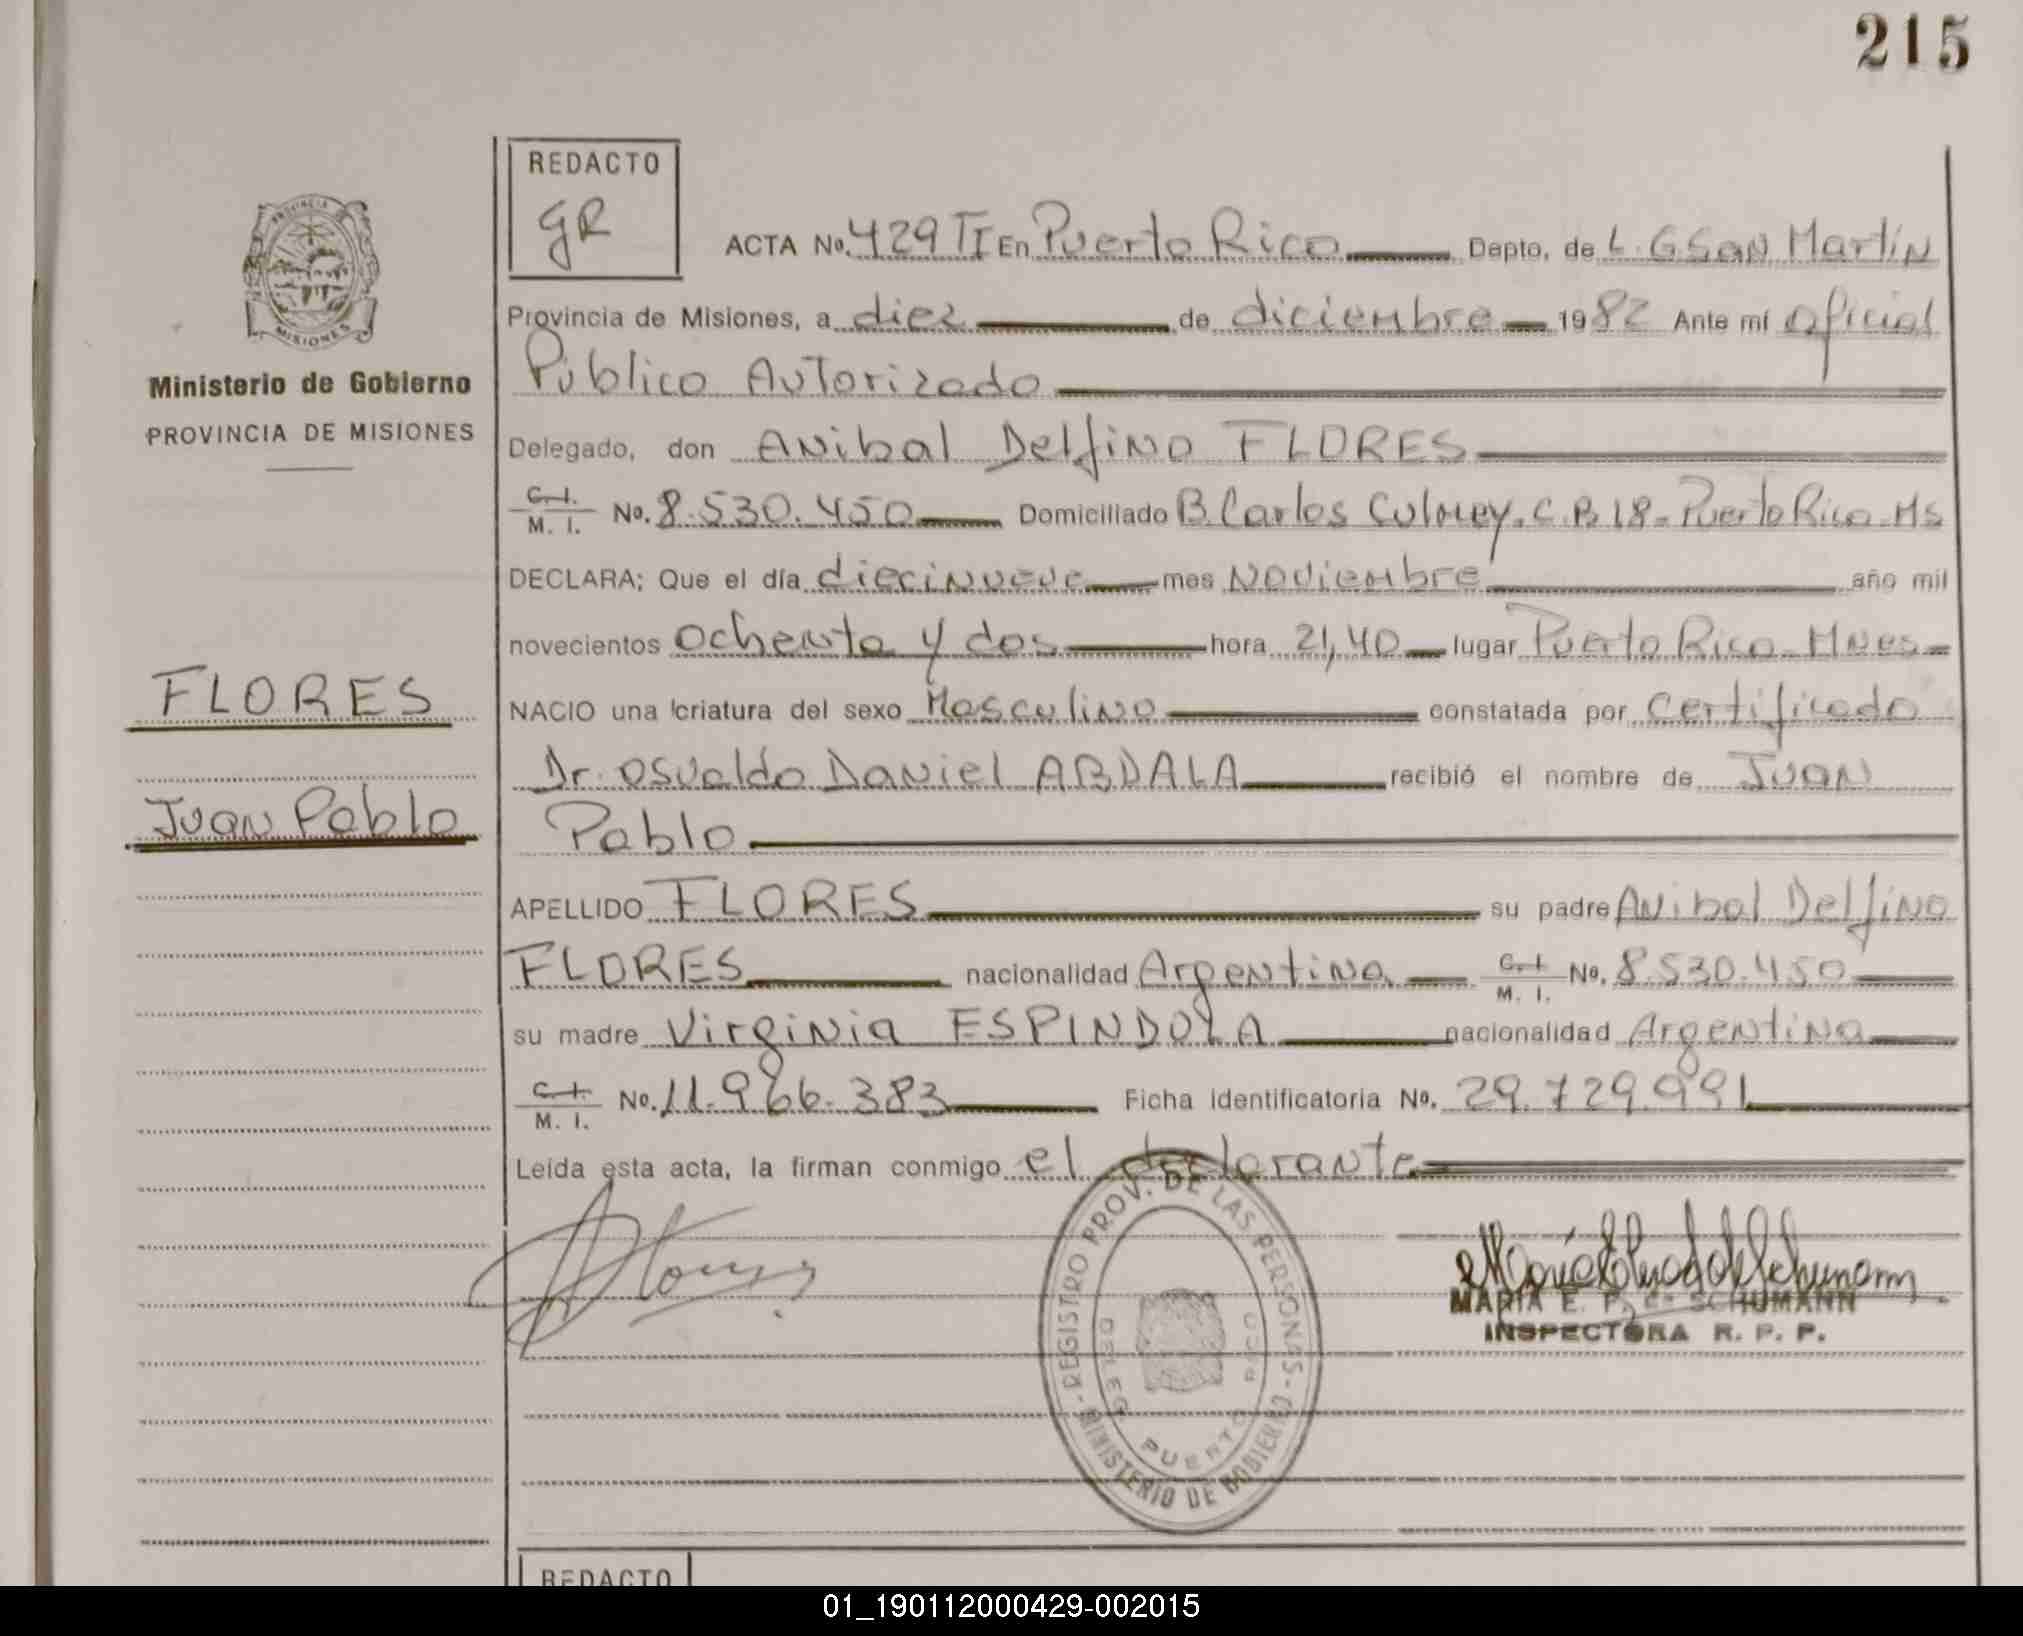 215
REDACTO
gR
ACTA No. 429 TI En Puerto Rico Depto. de L. G San Martín
Provincia de Misiones, a diez de diciembre 1982 Ante mí oficial
Público Autorizado
Delegado, don Anibal Delfino FLORES
C. I. M. I. No. 8.530.450 Domiciliado B. Carlos Culmey. C.B. 18 - Puerto Rico - Ms
DECLARA; Que el día diecinueve mes Noviembre año mil
novecientos ochenta y dos hora 21,40 lugar Puerto Rico - Mnes
NACIO una criatura del sexo Masculino constatada por Certificado
Dr. Osvaldo Daniel ABDALA recibió el nombre de Juan
Pablo
APELLIDO FLORES su padre Anibal Delfino
FLORES nacionalidad Argentina C. I. M. I. No. 8.530.450
su madre Virginia ESPINDOLA nacionalidad Argentina
C. I. M. I. No. 11.966.383 Ficha identificatoria No. 29.729.991
Leída esta acta, la firman conmigo el declarante
PROVINCIA DE
MISIONES
Ministerio de Gobierno
PROVINCIA DE MISIONES
FLORES
Juan Pablo
REGISTRO PROV. DE LAS PERSONAS - MINISTERIO DE GOBIERNO -
DELEG. PUERTO RICO
MARIA E. P. de SCHUMANN
INSPECTORA R. P. P.
REDACTO
01_190112000429-002015